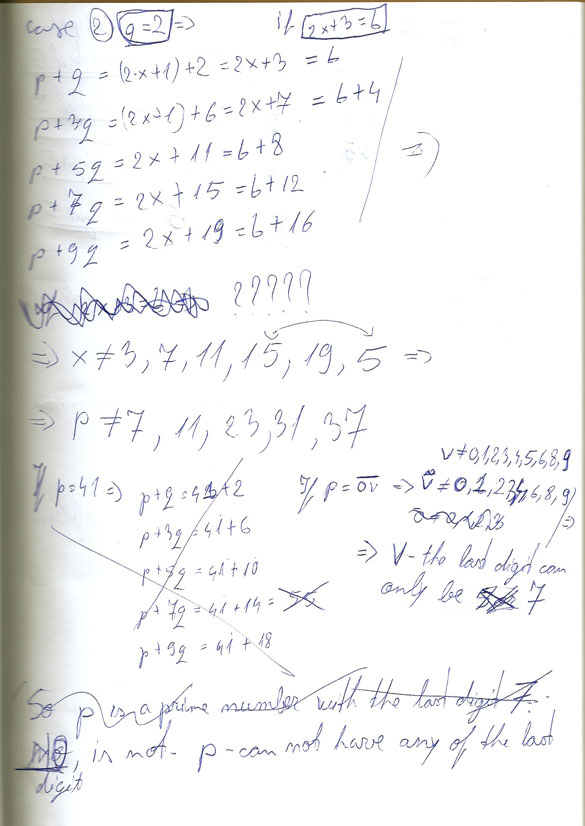 case ② q=2 ⇒ if 2x+3=6
p+q = (2·x+1)+2=2x+3 = 6
p+3q = (2x+1)+6=2x+7 = 6+4
p+5q = 2x+11=6+8 ⇒
p+7q = 2x+15=6+12
p+9q = 2x+19=6+16
?????
⇒ x≠3, 7, 11, 15, 19, 5 ⇒
⇒ p≠7, 11, 23, 31, 37
v≠0,1,2,3,4,5,6,8,9
If p=41 ⇒ p+q=41+2 If p=ov ⇒ v≠0,1,2,3,4,6,8,9
p+3q=41+6 ⇒
p+5q=41+10 ⇒ v-the last digit can
p+7q=41+14=55 only be 7
p+9q=41+18
So p is a prime number with the last digit 7.
No, is not. p-can not have any of the last
digit